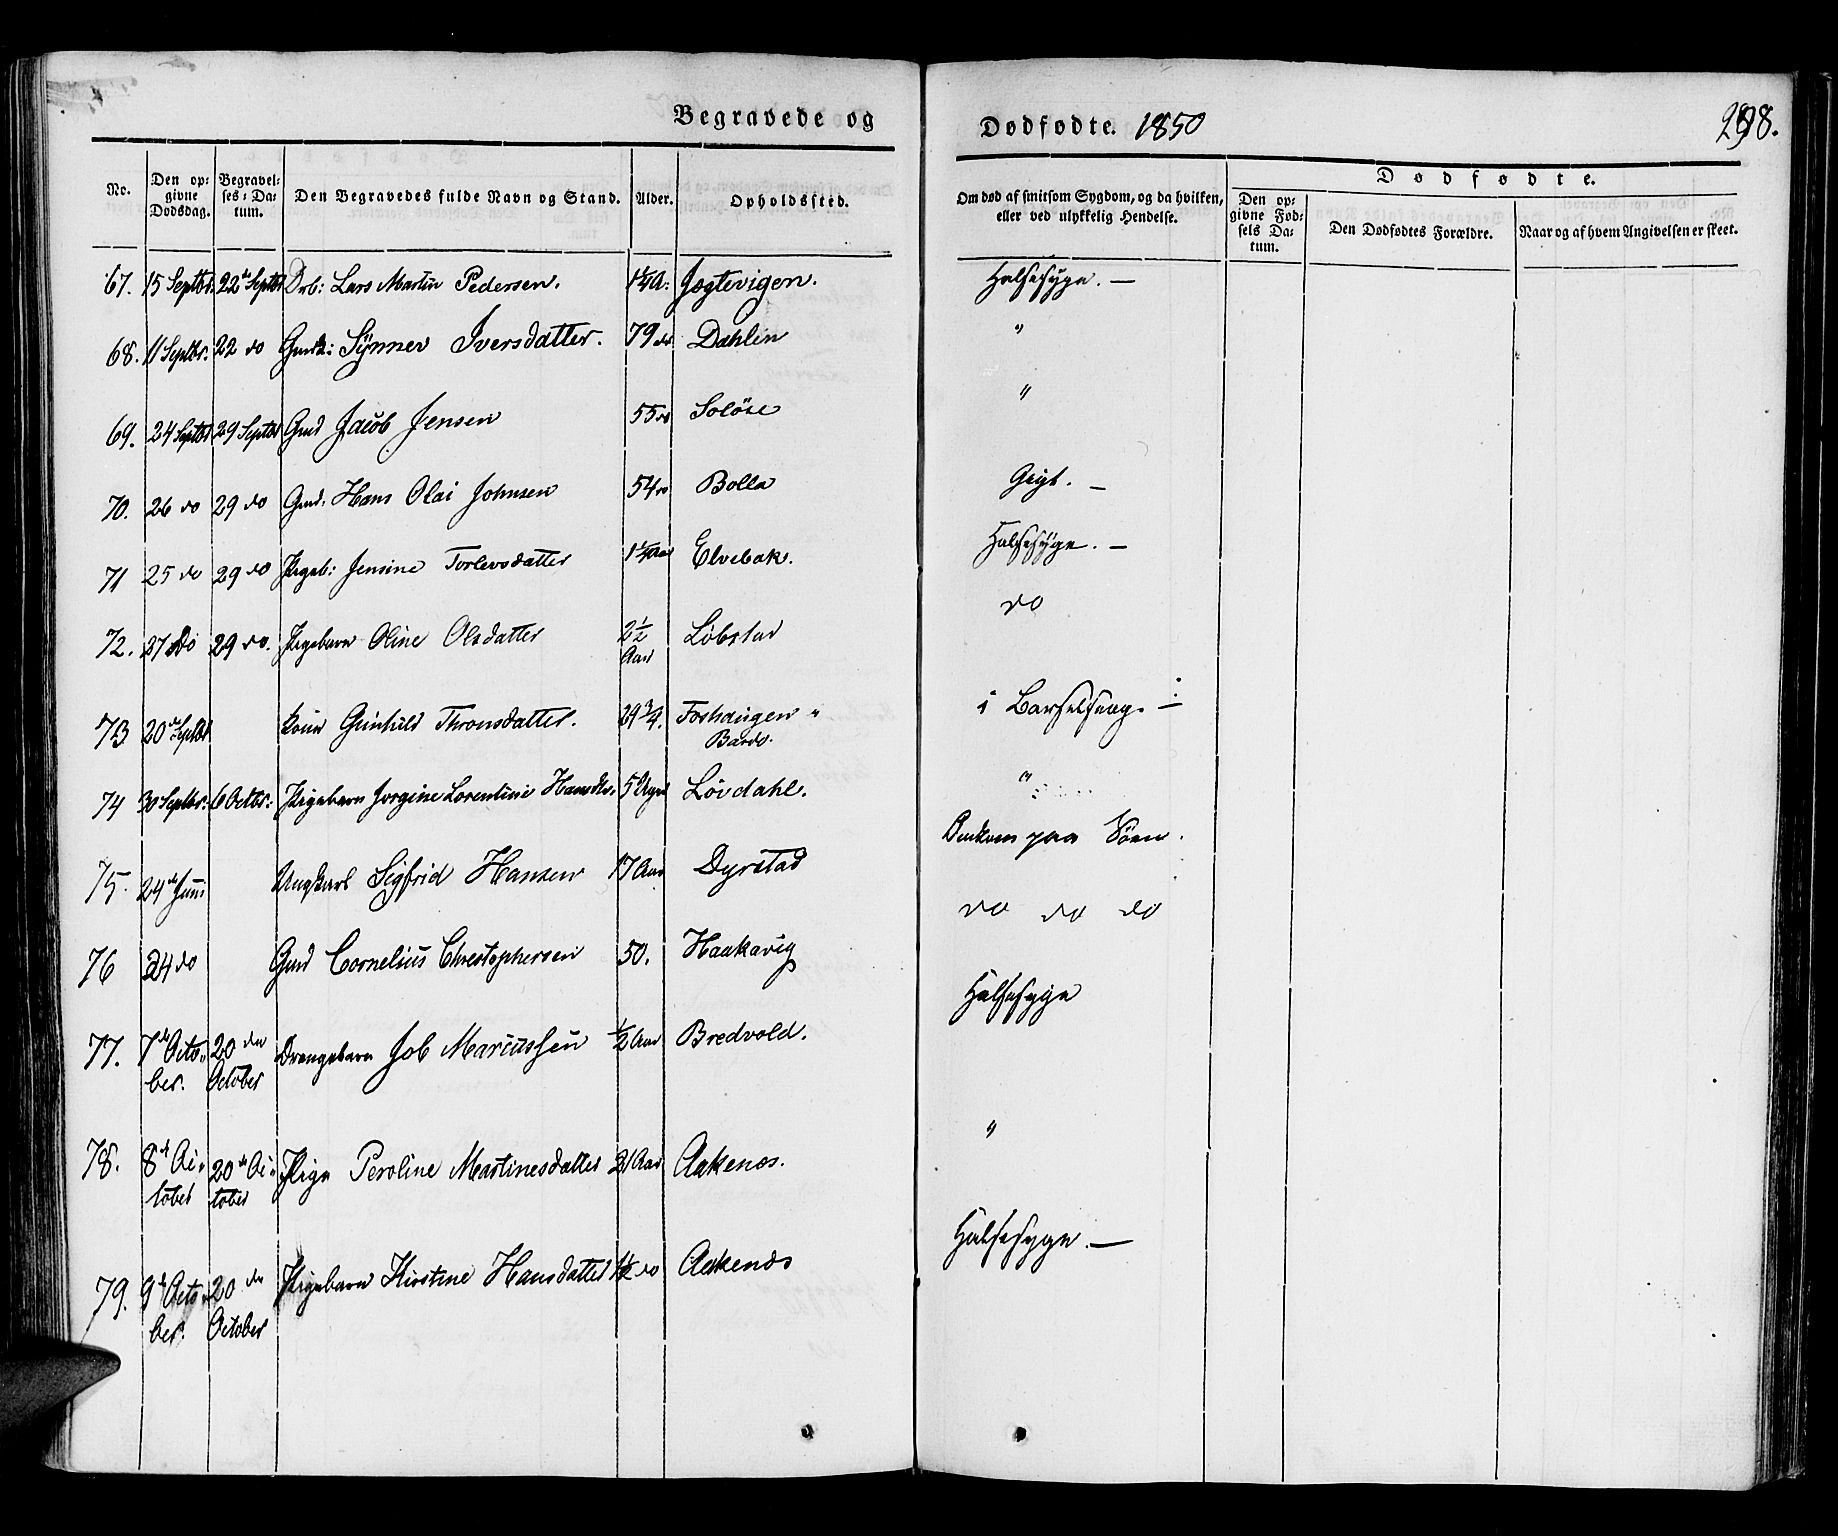 Begravede og
Dødfødte. 1850
298.
No.
Den opgivne Dødsdag.
Begravelses-Datum.
Den Begravedes fulde Navn og Stand.
Alder.
Opholdssted.
Om død af smitsom Sygdom, og da hvilken, eller ved ulykkelig Hendelse.
Dødfødte.
Den opgivne Fødsels Datum.
Den Dødfødtes Forældre.
Naar og af hvem Angivelsen er skeet.
67. 15 Septbr. 22de Septbr Drb: Lars Martin Pedersen. Jøgtevigen. Halsesyge. —
68. 11 Septbr. 22 do Gmdk: Synnev Iversdatter. 79 do Dahlen "
69. 24 Septbr 29 Septbr Gmd Jacob Jensen 55 do Soløse "
70. 26 do 29 do Gmd. Hans Olai Johnsen 54 do Bolla Gigt. —
71 25 do 29 do Pigeb: Jensine Torlevsdatter Elvebak. Halsesyge. —
72. 27 do 29 do. Pigebarn Oline Olsdatter 2½ Aar Løbstad do
73 20de Septbr Kone Gunhild Thronsdatter. 29 3/4. Foshaugen " Bardo. i Barselseng. —
74 30 Septbr. 6 Octbr: Pigebarn Jorgine Lorentine Hansdtr. 5 Løvdahl. "
75. 24de Juni Ungkarl Sigfrid Hansen 17 Aar Dyrstad Omkom paa Søen.
76 24 do Gmd Cornelius Christophersen 50. Haakavig do do do
77. 7de October. 20de October Drengebarn Job Mariussen ½ Aar Bredvold. Halsesyge
78. 8de October 20de October Pige Peroline Martinesdatter 21 Aar Aakenes. "
79. 9de October. 20de October Pigebarn Kirstine Hansdatter 1½ do Aakenes Halsesyge. —